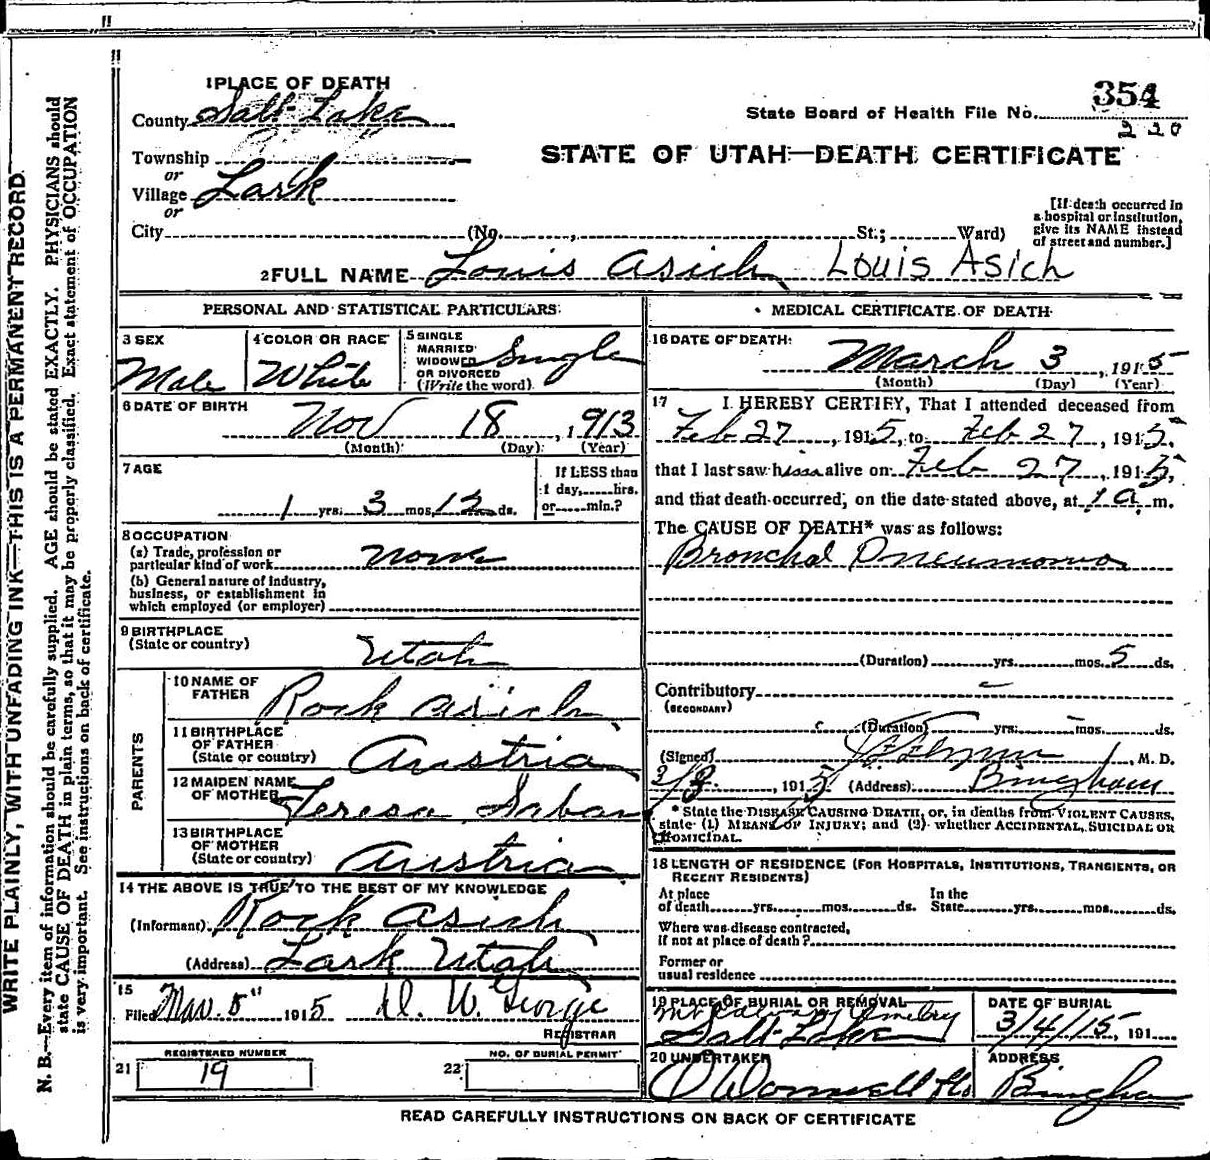 WRITE PLAINLY, WITH UNFADING INK—THIS IS A PERMANENT RECORD.
N. B.—Every item of information should be carefully supplied. AGE should be stated EXACTLY. PHYSICIANS should
state CAUSE OF DEATH in plain terms, so that it may be properly classified. Exact statement of OCCUPATION
is very important. See instructions on back of certificate.
1 PLACE OF DEATH
County Salt Lake
Township
or
Village Lark
or
City
354
State Board of Health File No.
220
STATE OF UTAH—DEATH CERTIFICATE
(No. , St.; Ward)
[If death occurred in
a hospital or institution,
give its NAME instead
of street and number.]
2 FULL NAME Louis Asich Louis Asich
PERSONAL AND STATISTICAL PARTICULARS
3 SEX
Male
4 COLOR OR RACE
White
5 SINGLE
MARRIED
WIDOWED
OR DIVORCED
(Write the word)
Single
6 DATE OF BIRTH
Nov 18, 1913
(Month) (Day) (Year)
7 AGE
1 yrs. 3 mos. 12 ds.
If LESS than
1 day, hrs.
or min.?
8 OCCUPATION
(a) Trade, profession or
particular kind of work None
(b) General nature of industry,
business, or establishment in
which employed (or employer)
9 BIRTHPLACE
(State or country)
Utah
PARENTS
10 NAME OF
FATHER
Rock Asich
11 BIRTHPLACE
OF FATHER
(State or country)
Austria
12 MAIDEN NAME
OF MOTHER
Teresa Saban
13 BIRTHPLACE
OF MOTHER
(State or country)
Austria
14 THE ABOVE IS TRUE TO THE BEST OF MY KNOWLEDGE
(Informant) Rock Asich
(Address) Lark Utah
15
Filed Mar. 5" 1915 D. W. George
REGISTRAR
REGISTERED NUMBER
21 19
NO. OF BURIAL PERMIT
22
MEDICAL CERTIFICATE OF DEATH
16 DATE OF DEATH:
March 3, 1915
(Month) (Day) (Year)
17 I HEREBY CERTIFY, That I attended deceased from
Feb 27, 1915, to Feb 27, 1915,
that I last saw him alive on Feb 27, 1915,
and that death occurred, on the date stated above, at 1 a m.
The CAUSE OF DEATH* was as follows:
Bronchal Pneumonia
(Duration) yrs. mos. 5 ds.
Contributory –
(SECONDARY)
(Duration) yrs. mos. ds.
(Signed) , M. D.
3/3, 1915 (Address) Bingham
* State the DISEASE CAUSING DEATH, or, in deaths from VIOLENT CAUSES,
state (1) MEANS OF INJURY; and (2) whether ACCIDENTAL, SUICIDAL OR
HOMICIDAL.
18 LENGTH OF RESIDENCE (FOR HOSPITALS, INSTITUTIONS, TRANSIENTS, OR
RECENT RESIDENTS)
At place
of death yrs. mos. ds.
In the
State yrs. mos. ds.
Where was disease contracted,
if not at place of death?
Former or
usual residence
19 PLACE OF BURIAL OR REMOVAL
Mt Calvary Cemetery
Salt Lake
DATE OF BURIAL
3/4/15, 191
20 UNDERTAKER
O'Donnell
ADDRESS
Bingham
READ CAREFULLY INSTRUCTIONS ON BACK OF CERTIFICATE